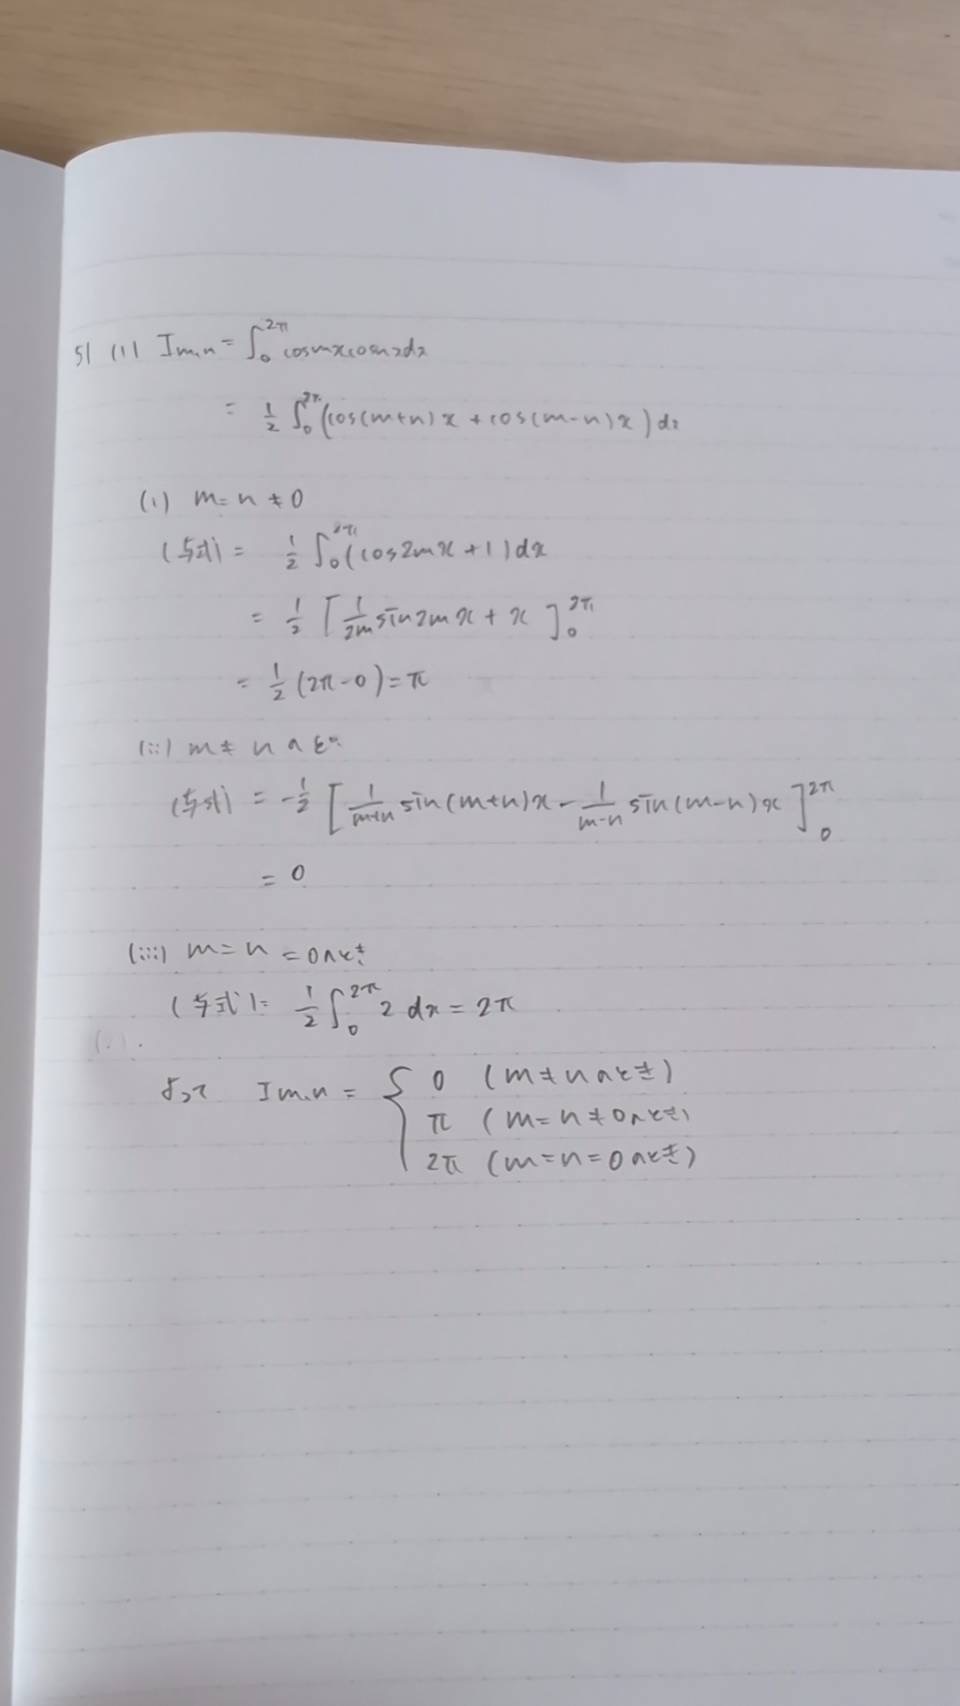 51 (1) Im,n = ∫₀^2π cosmxcosnxdx
= 1/2 ∫₀^2π (cos(m+n)x + cos(m-n)x) dx
(i) m=n≠0
(与式) = 1/2 ∫₀^2π (cos2mx+1)dx
= 1/2 [1/2m sin2mx + x]₀^2π
= 1/2 (2π-0) = π
(ii) m≠nのとき
(与式) = -1/2 [1/m+n sin(m+n)x - 1/m-n sin(m-n)x]₀^2π
= 0
(iii) m=n=0のとき
(与式) = 1/2 ∫₀^2π 2 dx = 2π
よって Im,n = { 0 (m≠nのとき)
π (m=n≠0のとき)
2π (m=n=0のとき)